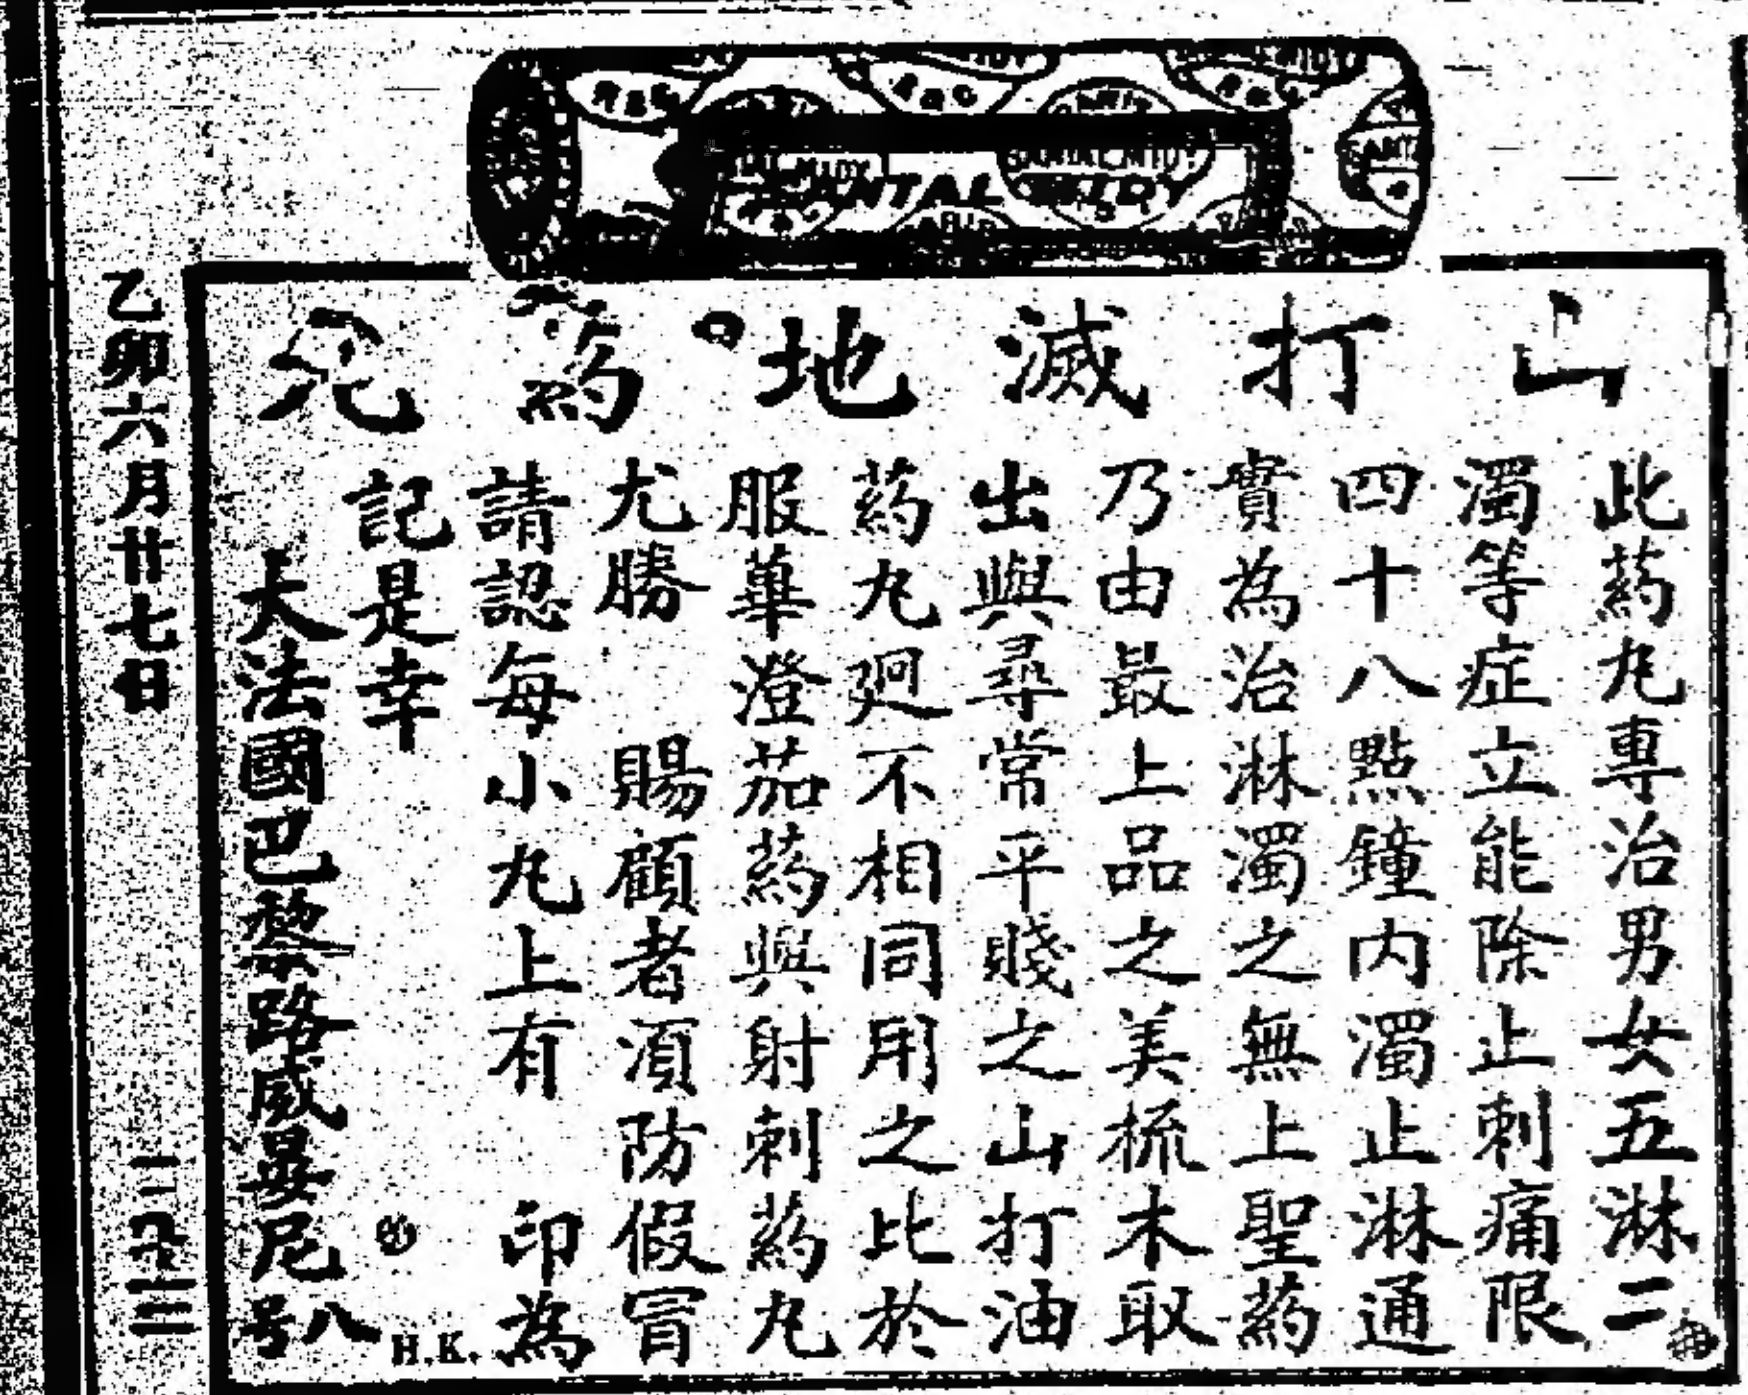 SANTAL MIDY
山打滅地葯丸
此葯丸專治男女五淋二
濁等症立能除止刺痛限
四十八點鐘内濁止淋通
實為治淋濁之無上聖葯
乃由最上品之美梳木取
出與尋常平賤之山打油
葯丸廻不相同用之比於
服蓽澄茄葯與射刺葯丸
尤勝 賜顧者須防假冒
請認每小丸上有 印為
記是幸
H.K.
大法國巴黎路威晏尼八号
乙卯六月廿七日